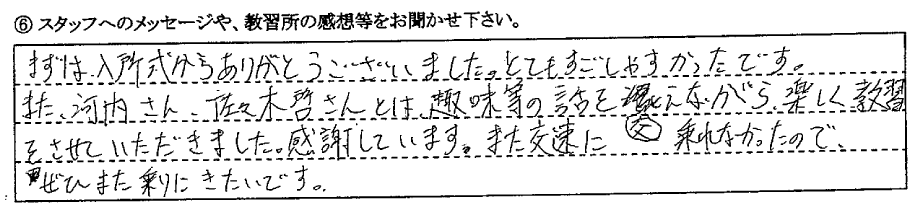 ⑥ スタッフへのメッセージや、教習所の感想等をお聞かせ下さい。
まずは、入所式からありがとうございました。とてもすごしやすかったです。
また、河内さん、佐々木哲さんとは、趣味等の話を交えながら、楽しく教習
をさせていただきました。感謝しています。また交速に 乗れなかったので、
ぜひまた乗りにきたいです。